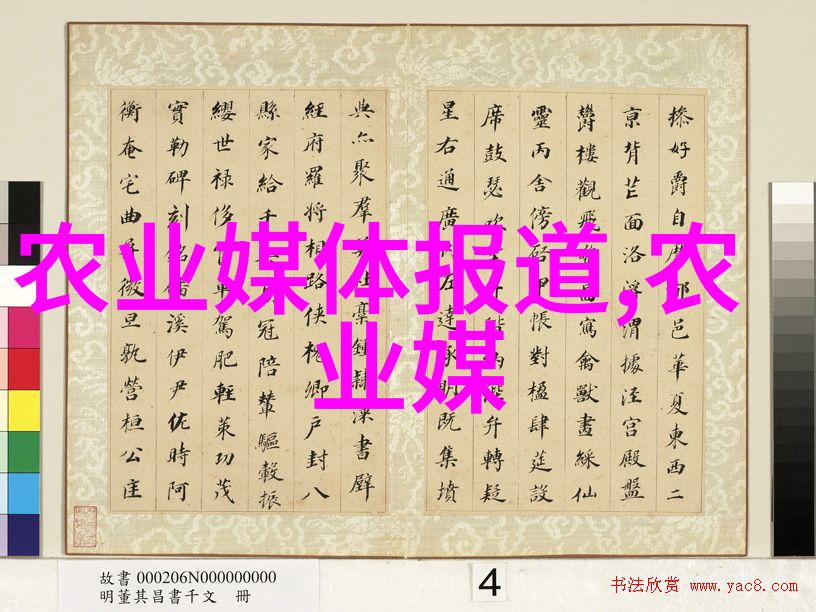 農业媒体报道,农
业媒
操好爵自縻都邑華夏東西二
京背芒面洛浮渭據涇宮殿盤
欝樓觀飛驚啚寫禽獸畫綵仙
靈丙舍傍啓甲帳對楹肆筵設
席鼓瑟吹笙升階納陛弁轉疑
星右通廣內左達承明既集墳
典亦聚羣英杜稾鍾隸漆書壁
經府羅將相路俠槐卿戶封八
縣家給千兵高冠陪輦驅轂振
纓世祿侈富車駕肥輕策功茂
實勒碑刻銘磻溪伊尹佐時阿
衡奄宅曲阜微旦孰營桓公匡
故書 000206N000000000
明董其昌書千文 冊
4
书法欣赏 www.yac8.com